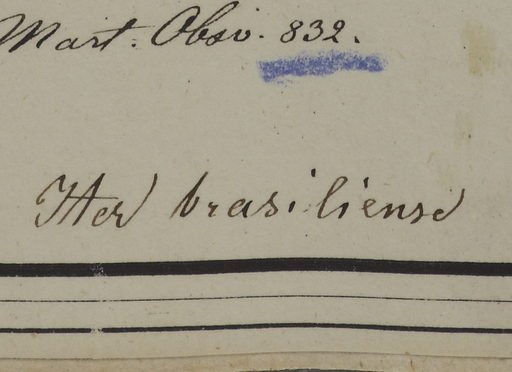 Mart. Obsv. 832.
Iter brasiliense